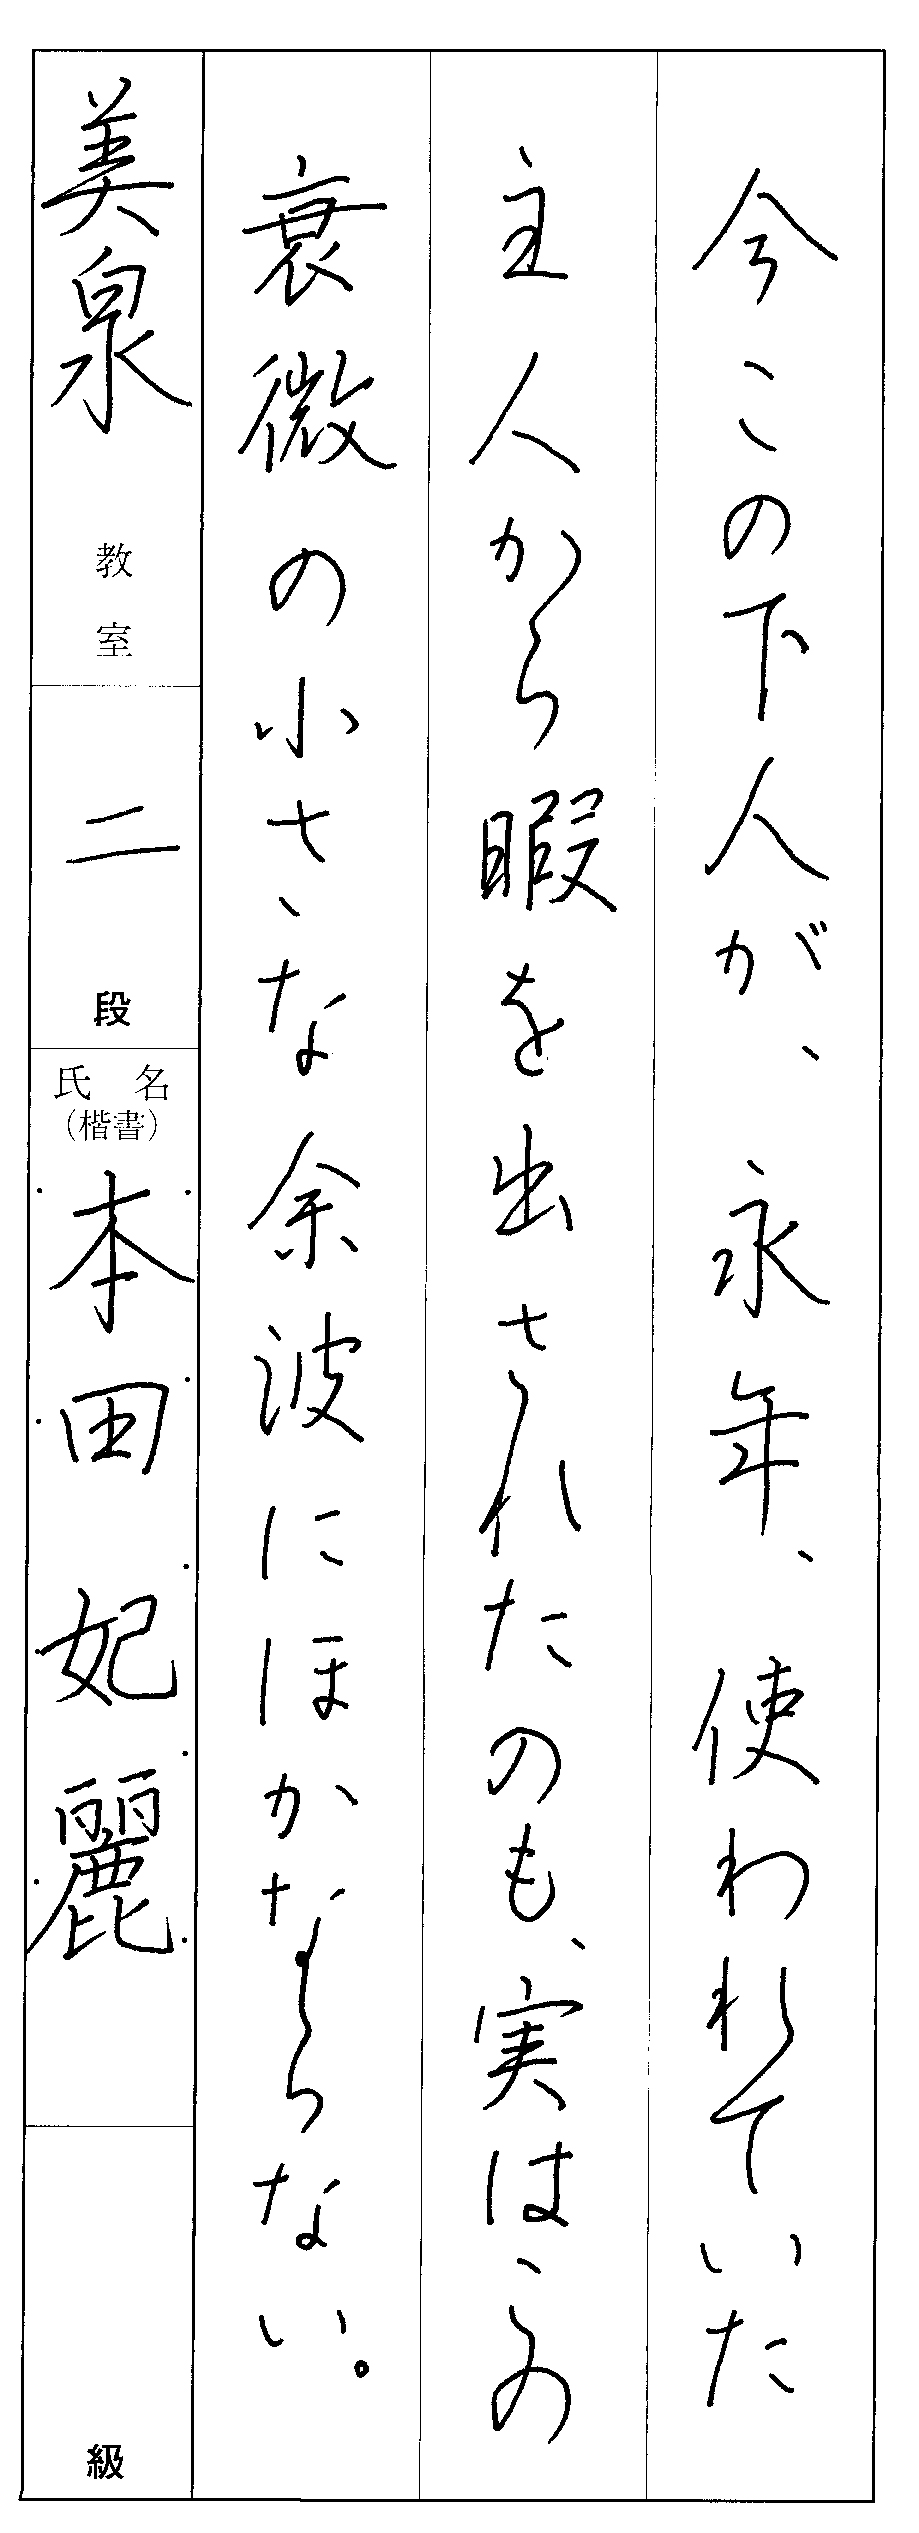 今この下人が、永年、使われていた
主人から暇を出されたのも、実はこの
衰微の小さな余波にほかならない。
美泉教室
二段
氏名
（楷書）
本田妃麗
級